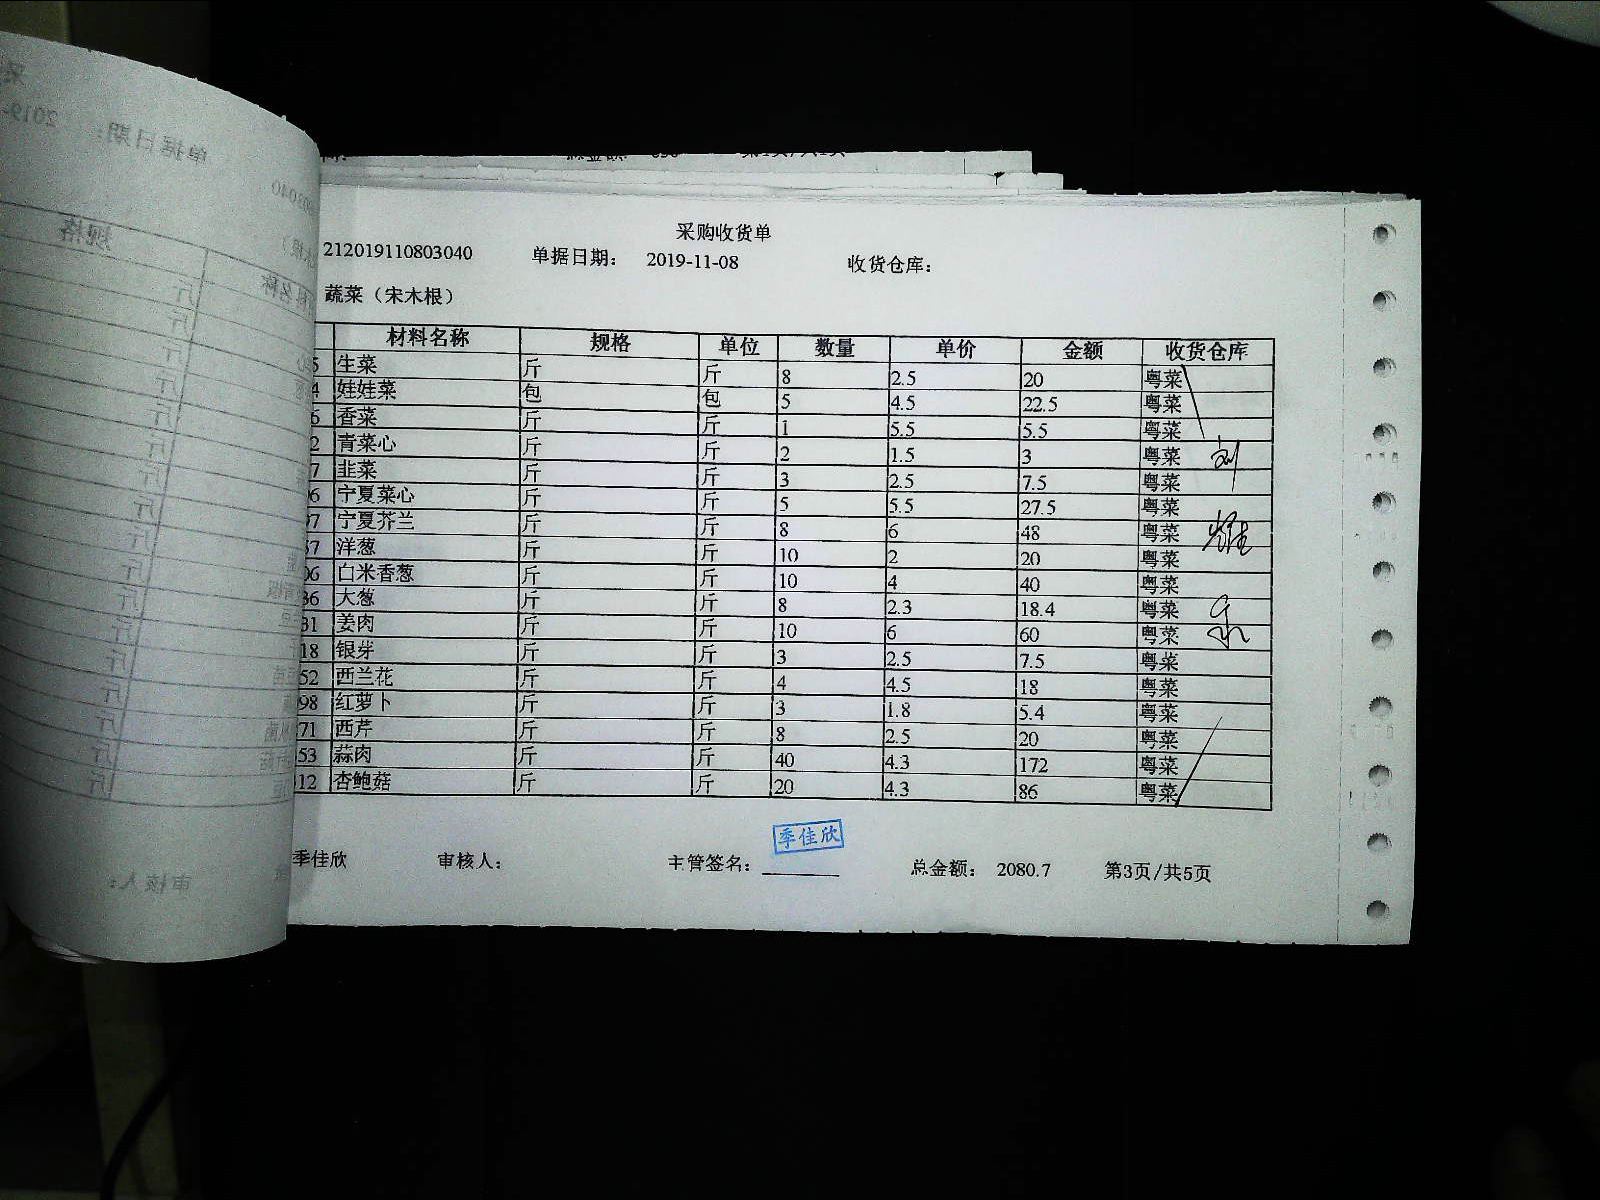 采购收货单
212019110803040 单据日期： 2019-11-08 收货仓库：
蔬菜（宋木根）
材料名称 规格 单位 数量 单价 金额 收货仓库
5 生菜 斤 斤 8 2.5 20 粤菜
4 娃娃菜 包 包 5 4.5 22.5 粤菜
6 香菜 斤 斤 1 5.5 5.5 粤菜
2 青菜心 斤 斤 2 1.5 3 粤菜
7 韭菜 斤 斤 3 2.5 7.5 粤菜
06 宁夏菜心 斤 斤 5 5.5 27.5 粤菜
07 宁夏芥兰 斤 斤 8 6 48 粤菜
57 洋葱 斤 斤 10 2 20 粤菜
06 白米香葱 斤 斤 10 4 40 粤菜
36 大葱 斤 斤 8 2.3 18.4 粤菜
31 姜肉 斤 斤 10 6 60 粤菜
18 银芽 斤 斤 3 2.5 7.5 粤菜
52 西兰花 斤 斤 4 4.5 18 粤菜
98 红萝卜 斤 斤 3 1.8 5.4 粤菜
71 西芹 斤 斤 8 2.5 20 粤菜
53 蒜肉 斤 斤 40 4.3 172 粤菜
12 杏鲍菇 斤 斤 20 4.3 86 粤菜
季佳欣
季佳欣 审核人： 主管签名： 总金额： 2080.7 第3页/共5页